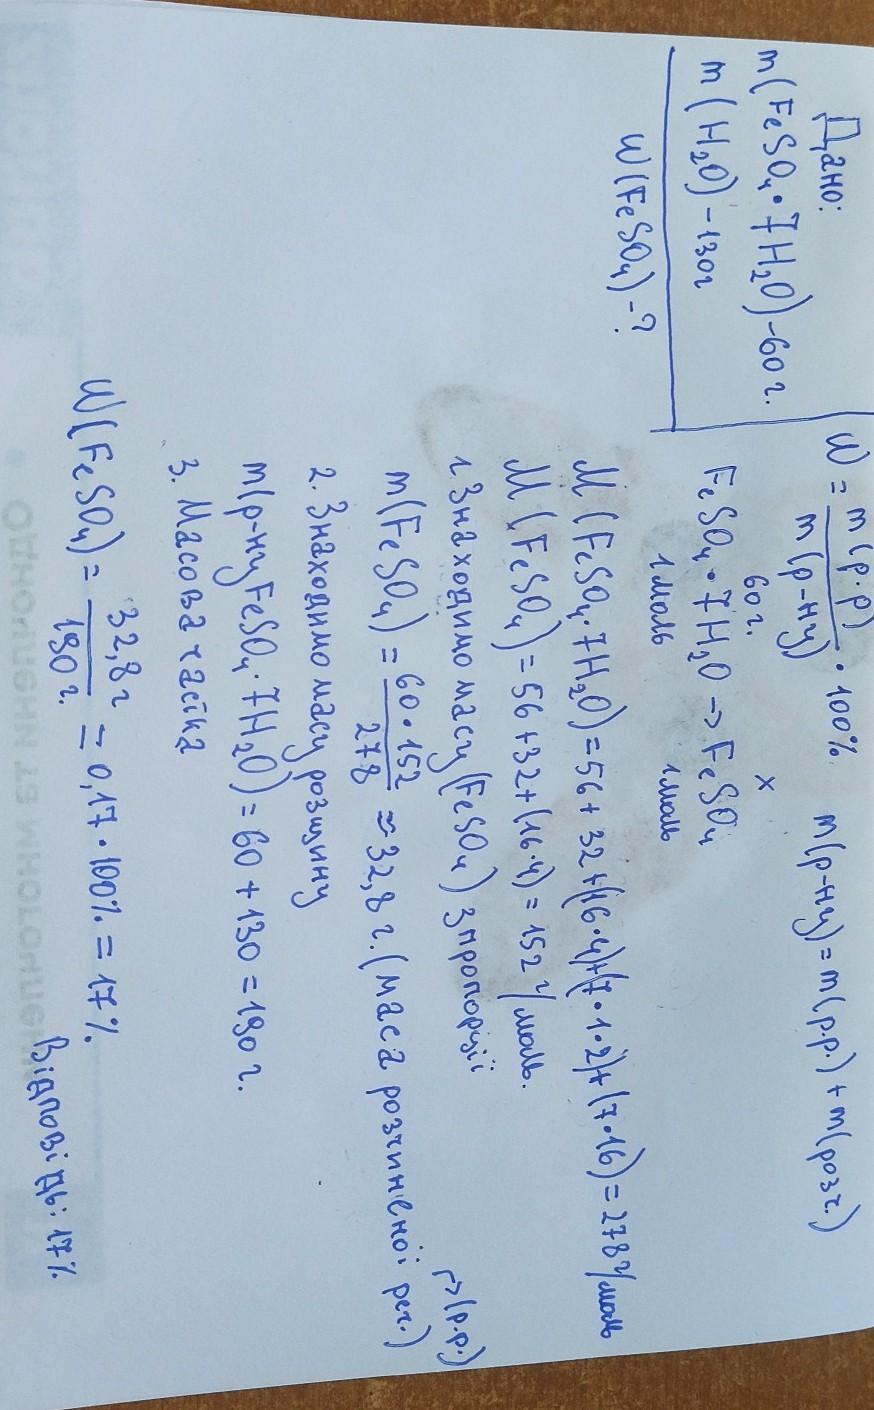 Дано:
m(FeSO₄·7H₂O)-60г.
m(H₂O)-130г
W(FeSO₄)-?
W = m(р.р) / m(р-ну) · 100%  m(р-ну)=m(р.р.)+m(розч.)
60г.  x
FeSO₄·7H₂O → FeSO₄
1моль  1моль
M(FeSO₄·7H₂O)=56+32+(16·4)+(7·1·2)+(7·16)=278г/моль
M(FeSO₄)=56+32+(16·4)=152г/моль.
1. Знаходимо масу (FeSO₄) з пропорції
m(FeSO₄) = 60·152 / 278 ≈ 32,8г. (маса розчиненої реч.) ↱(р.р.)
2. Знаходимо масу розчину
m(р-ну FeSO₄·7H₂O)=60+130=190г.
3. Масова частка
W(FeSO₄) = 32,8г / 190г. = 0,17·100% = 17%.
Відповідь: 17%
Одночлени та многочлени